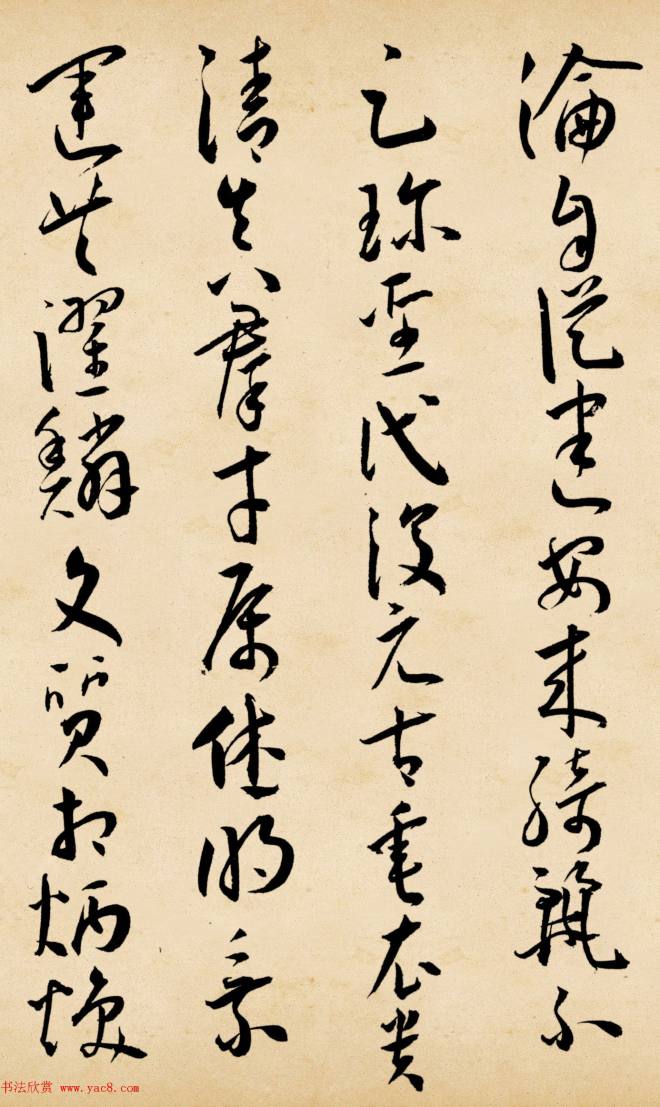 淪自從建安來綺麗不
足珍聖代復元古垂衣貴
清真羣才屬休明乘
運共躍鱗文質相炳煥
书法欣赏 www.yac8.com